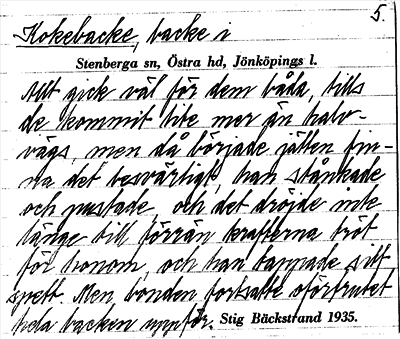 5.
Kokebacke, backe i
Stenberga sn, Östra hd, Jönköpings l.
Allt gick väl för dem båda, tills
de kommit lite mer än halv-
vägs, men då började jätten fin-
na det besvärligt, han stånkade
och pustade och det dröjde inte
länge till förrän krafterna tröt
för honom, och han tappade sitt
spett. Men bonden fortsatte oförtrutet
hela backen uppför. Stig Bäckstrand 1935.